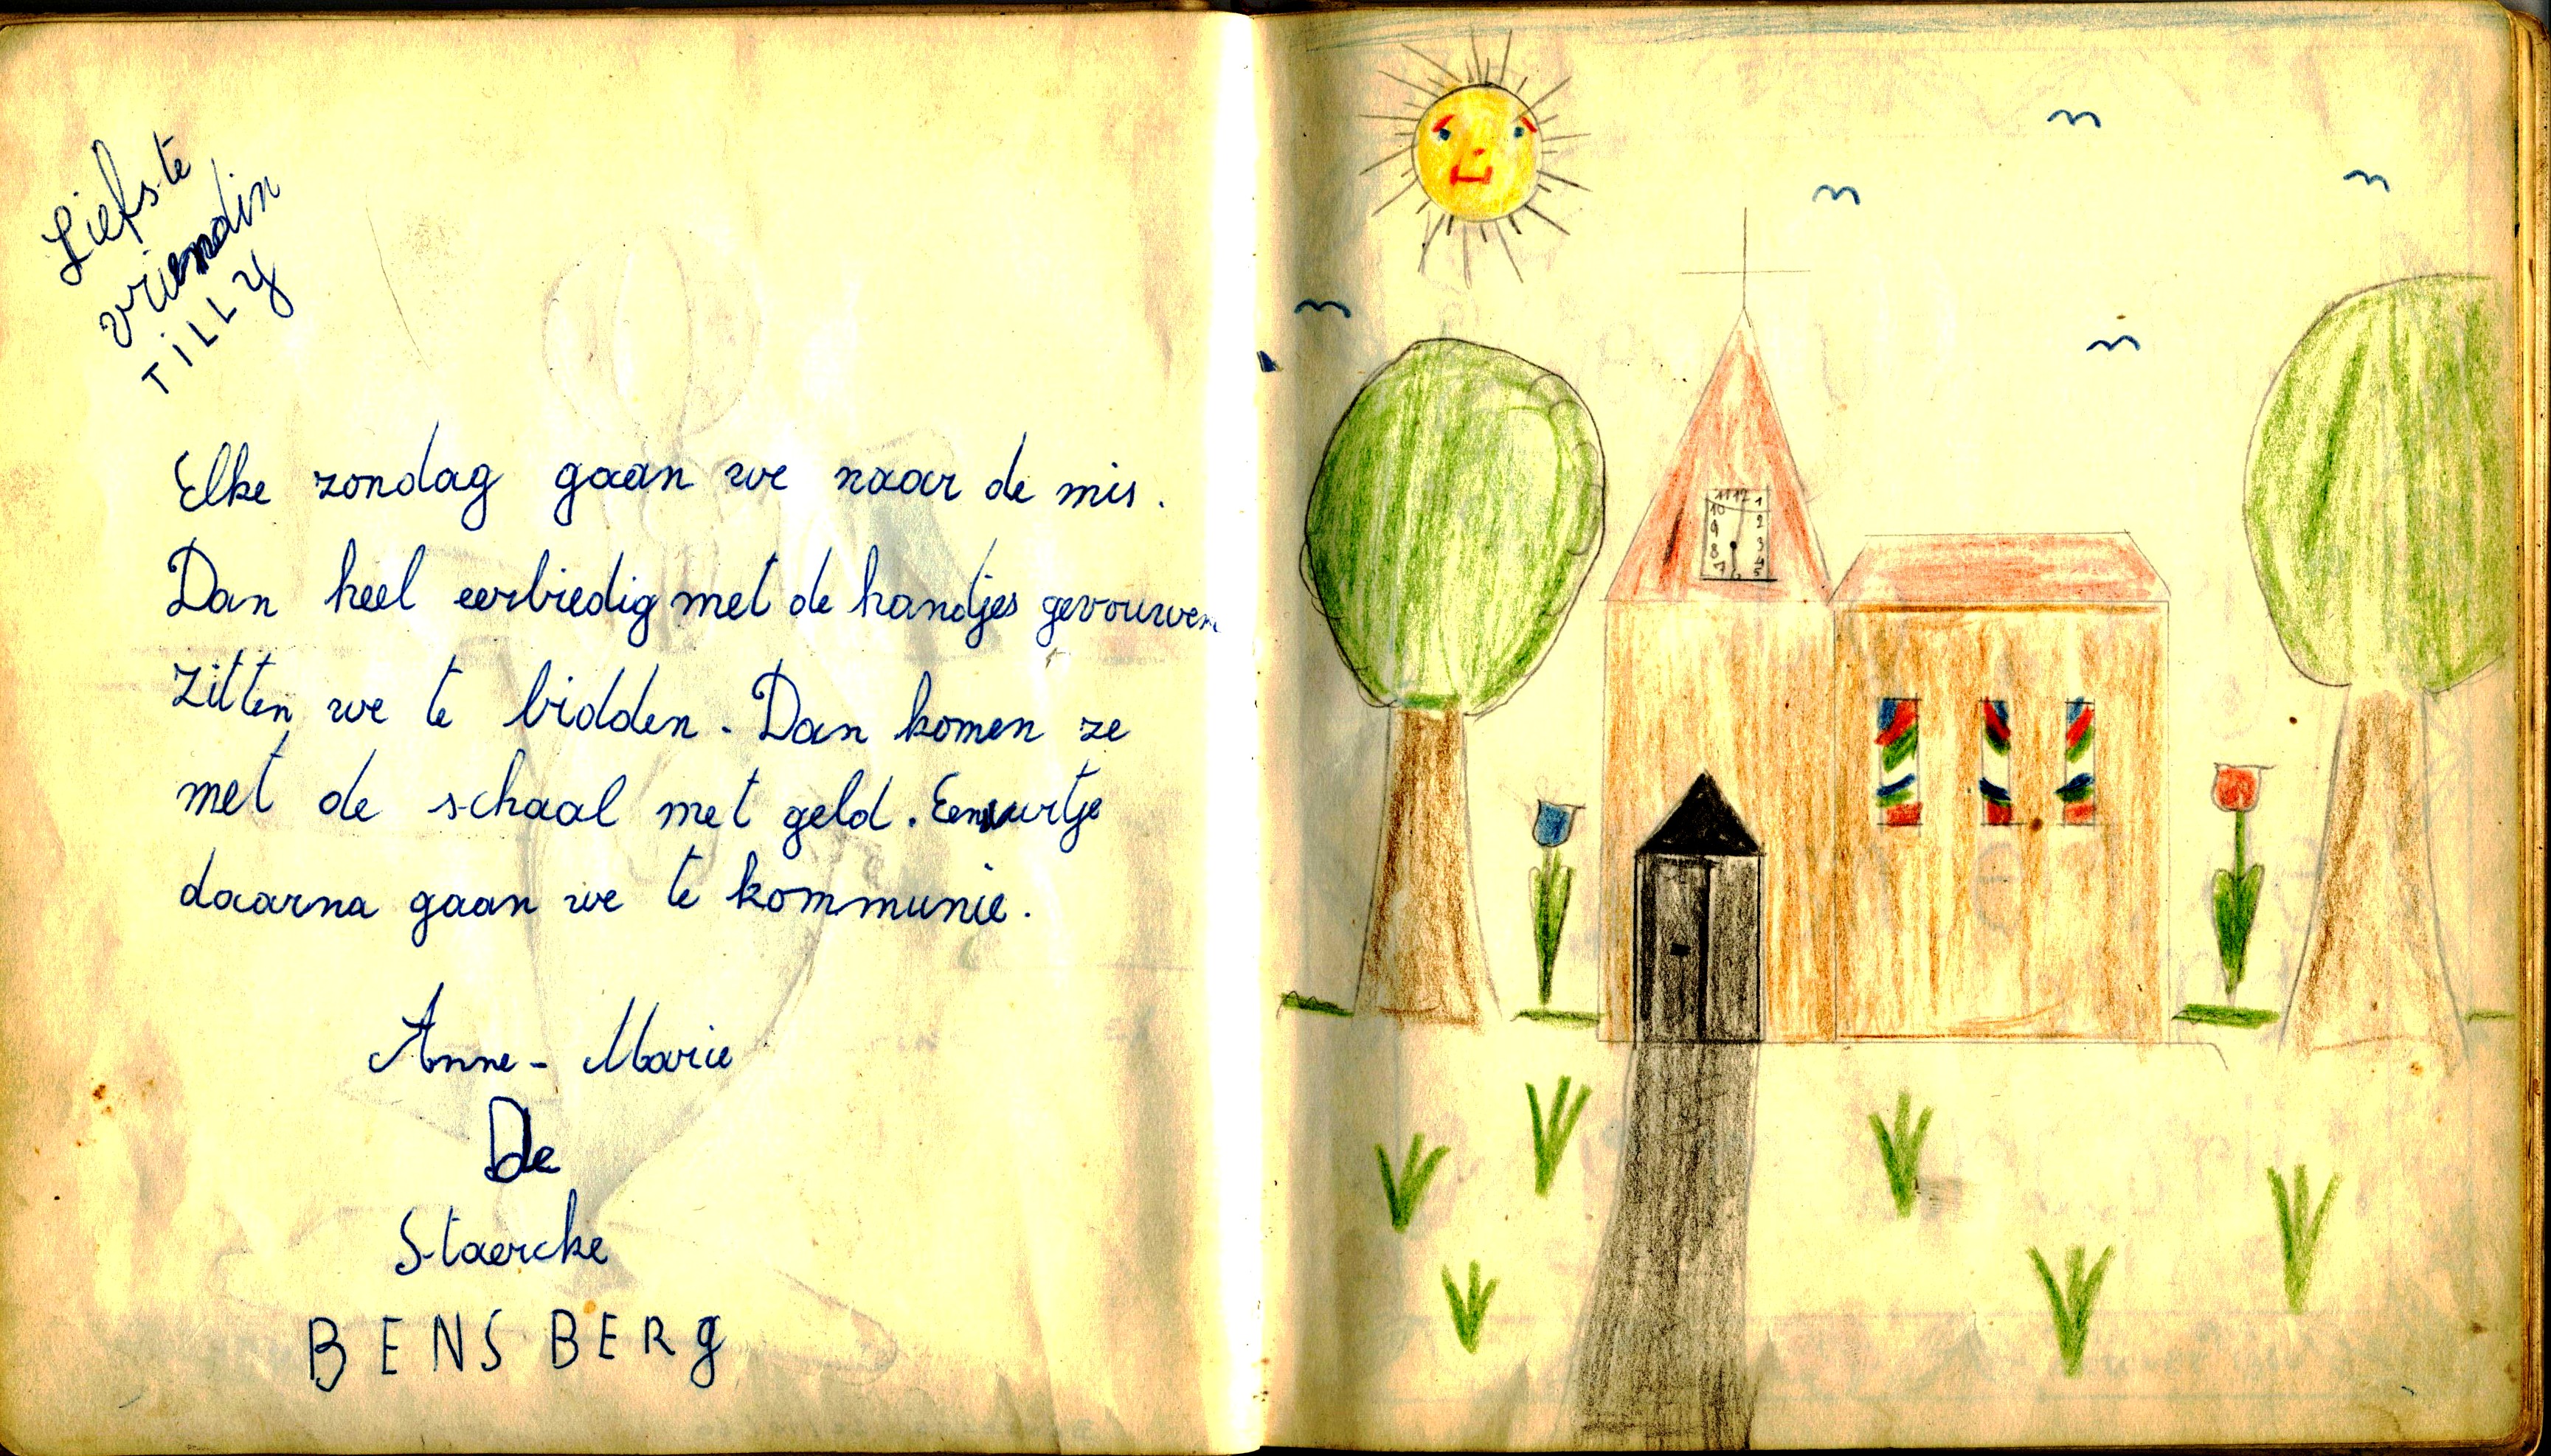 Liefste
vriendin
TiLLY
Elke zondag gaan we naar de mis.
Dan heel eerbiedig met de handjes gevouwen
zitten we te bidden. Dan komen ze
met de schaal met geld. Een uurtje
daarna gaan we te kommunie.
Anne-Marie
De
Staercke
BENSBERg
11 12 1
10 2
9 3
8 4
7 6 5